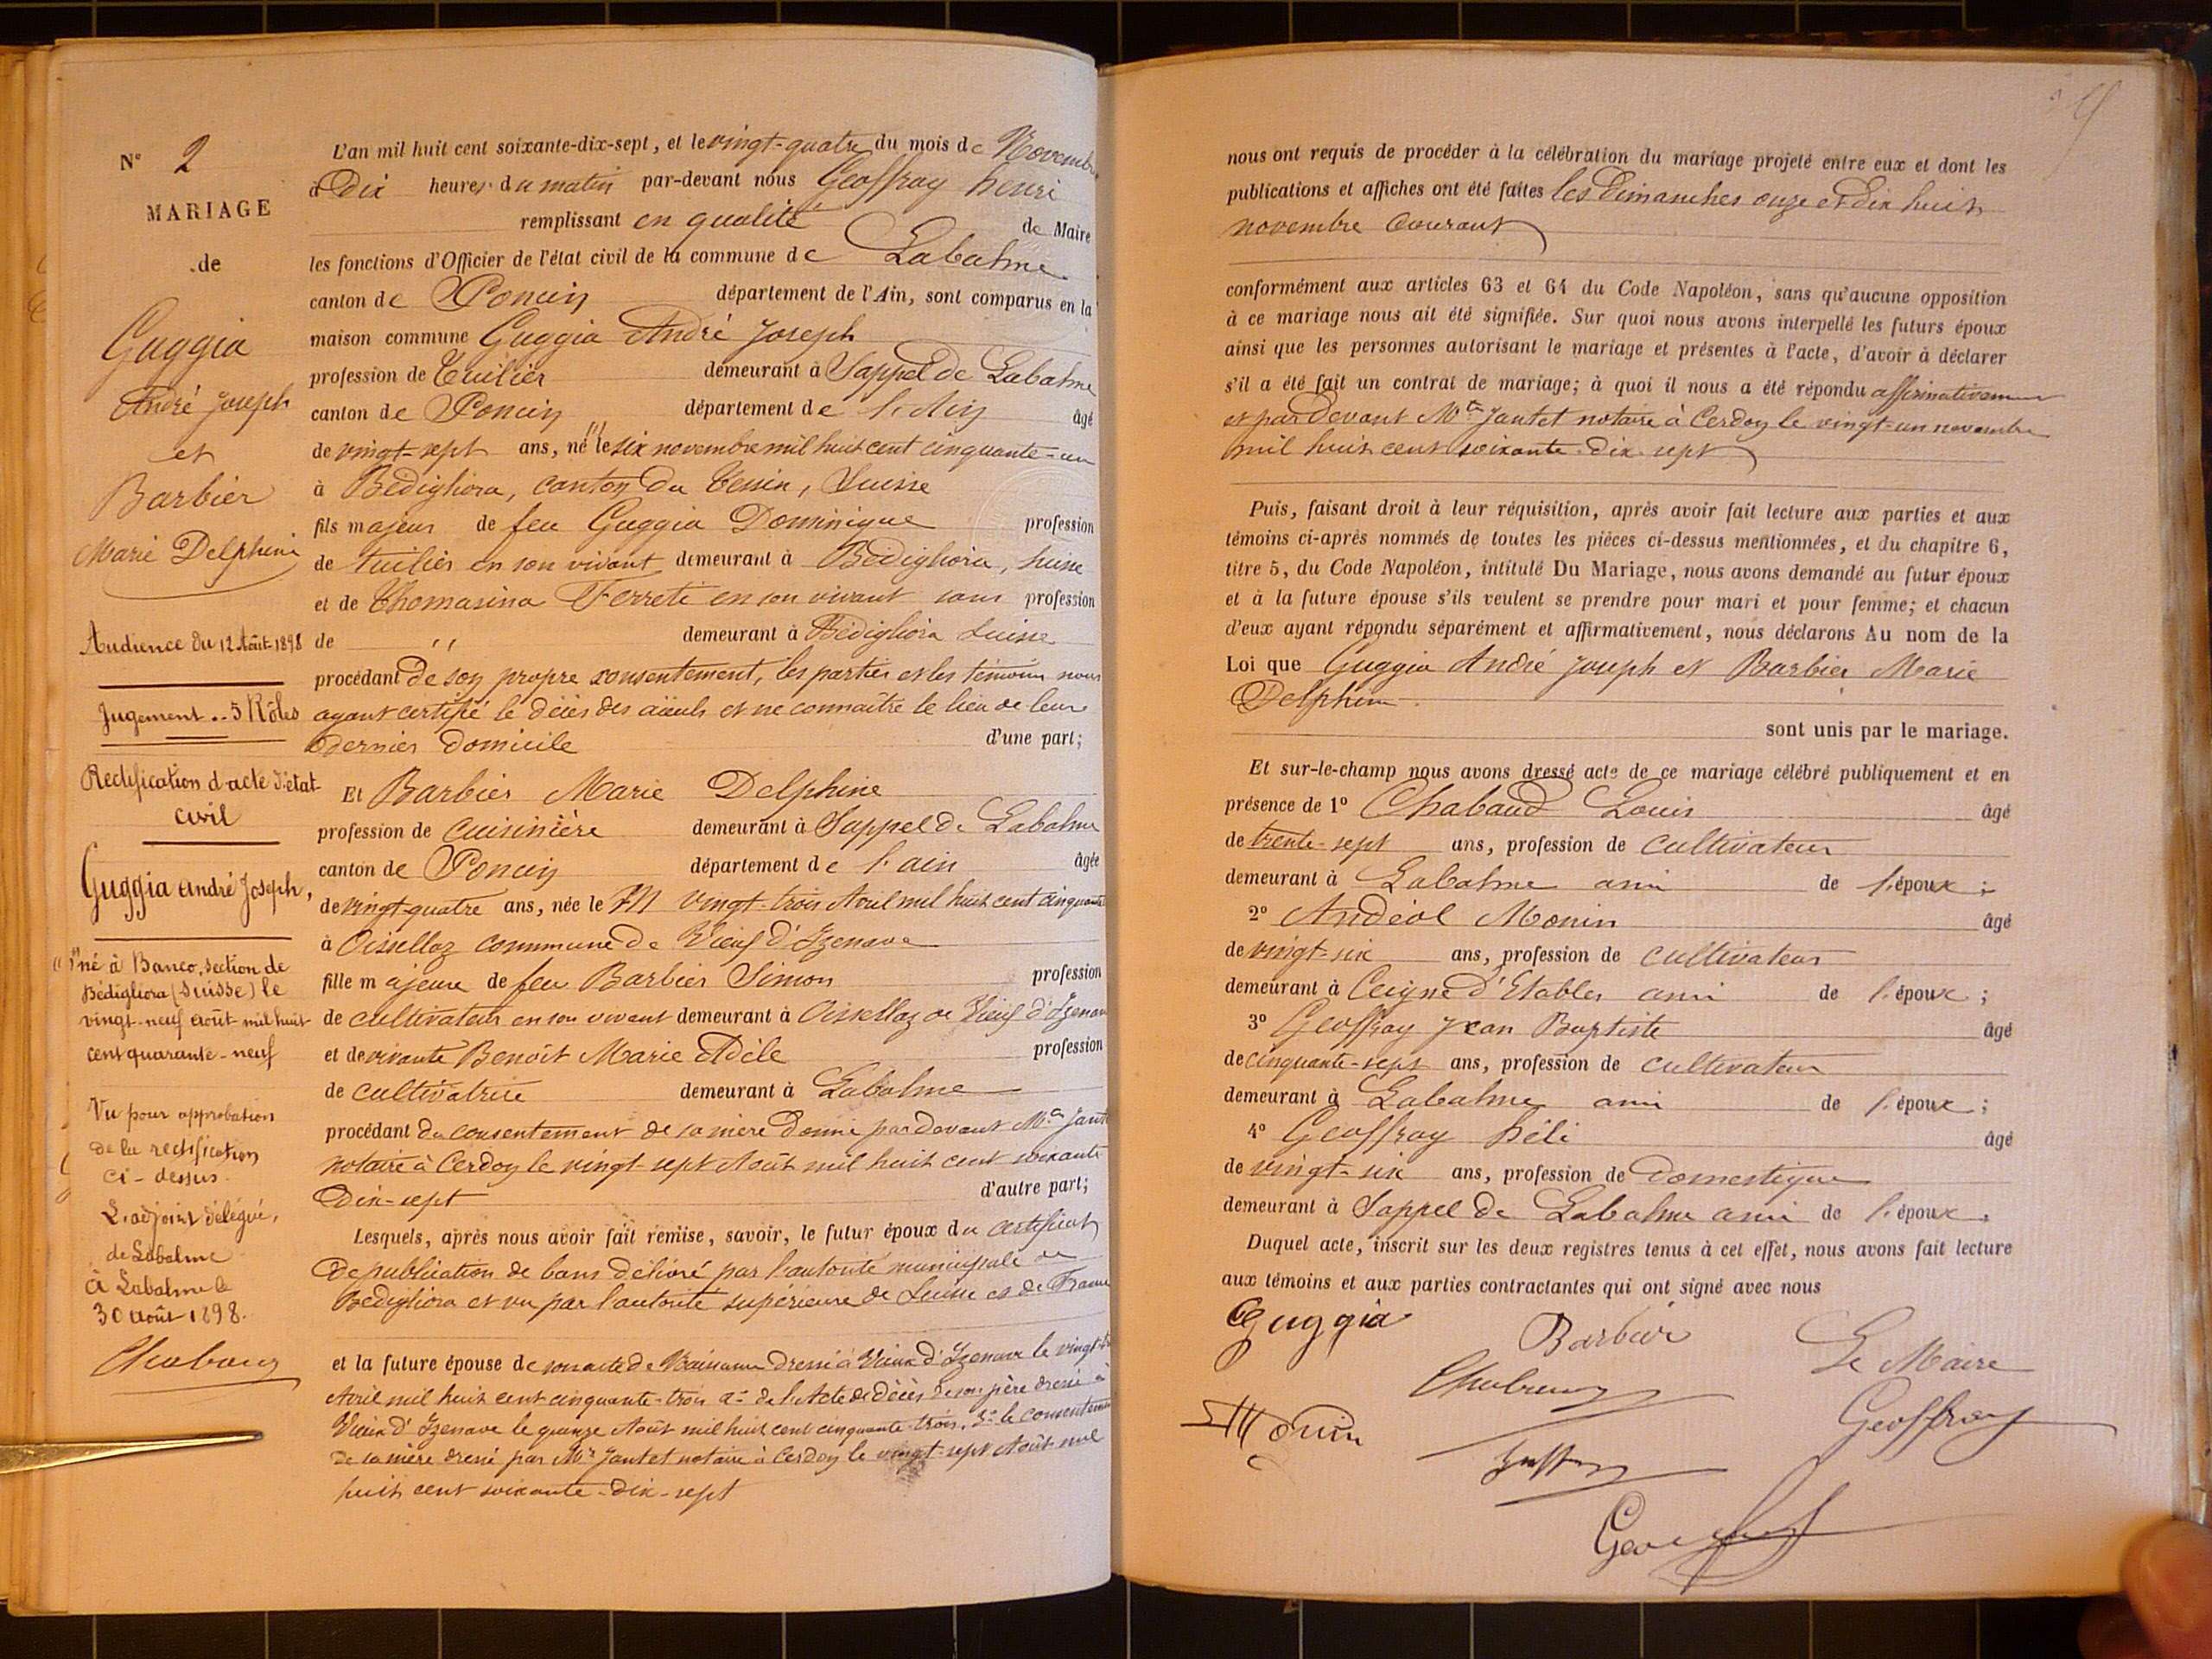 N° 2
MARIAGE
de
Guggia
André Joseph
et
Barbier
Marie Delphine
Audience du 12 Août 1898
Jugement .. 5 Rôles
Rectification d'acte d'état
civil
Guggia André Joseph,
né à Banco, section de
Bédigliora (Suisse) le
vingt-neuf août mil huit
cent quarante-neuf
Vu pour approbation
de la rectification
ci-dessus.
L'adjoint délégué,
de Labalme
à Labalme le
30 août 1898.
L'an mil huit cent soixante-dix-sept, et le vingt-quatre du mois de Novembre
à Dix heures du matin par-devant nous Geoffray henri
remplissant en qualité de Maire
les fonctions d'Officier de l'état civil de la commune de Labalme
canton de Poncin département de l'Ain, sont comparus en la
maison commune Guggia André Joseph
profession de Tuilier demeurant à Sappel de Labalme
canton de Poncin département de l'Ain âgé
de vingt-sept ans, né le six novembre mil huit cent cinquante-un
à Bédighora, canton du Tessin, Suisse
fils majeur de feu Guggia Dominique profession
de tuilier en son vivant demeurant à Bédighora, suisse
et de Thomasina Ferreti en son vivant sans profession
de " demeurant à Bédigliora Suisse
procédant de son propre consentement, les parties et les témoins nous
ayant certifié le décès des aïeuls et ne connaître le lieu de leur
dernier domicile d'une part;
Et Barbier Marie Delphine
profession de cuisinière demeurant à Sappel de Labalme
canton de Poncin département de l'ain âgée
de vingt-quatre ans, née le vingt-trois Avril mil huit cent cinquante
à Oisellaz commune de Vieux d'Izenave
fille majeure de feu Barbier Simon profession
de cultivateur en son vivant demeurant à Oisellaz de Vieux d'Izenave
et de vivante Benoît Marie Adèle profession
de cultivatrice demeurant à Labalme
procédant du consentement de sa mère donné par devant Me Jantet
notaire à Cerdon le vingt-sept Août mil huit cent soixante
Dix-sept d'autre part;
Lesquels, après nous avoir fait remise, savoir, le futur époux du certificat
de publication de bans délivré par l'autorité municipale de
Bedigliora et vu par l'autorité supérieure de Suisse et de France
et la future épouse de son acte de Naissance dressé à Vieux d'Izenave le vingt-
Avril mil huit cent cinquante-trois 2° de l'Acte de décès de son père dressé à
Vieux d'Izenave le quinze Août mil huit cent cinquante-trois, 3° le consentement
de sa mère dressé par Me Jantet notaire à Cerdon le vingt-sept Août mil
huit cent soixante-dix-sept
nous ont requis de procéder à la célébration du mariage projeté entre eux et dont les
publications et affiches ont été faites les Dimanches onze et dix huit
novembre courant
conformément aux articles 63 et 64 du Code Napoléon, sans qu'aucune opposition
à ce mariage nous ait été signifiée. Sur quoi nous avons interpellé les futurs époux
ainsi que les personnes autorisant le mariage et présentes à l'acte, d'avoir à déclarer
s'il a été fait un contrat de mariage; à quoi il nous a été répondu affirmativement
et par devant Me Jantet notaire à Cerdon le vingt-un novembre
mil huit cent soixante-dix-sept
Puis, faisant droit à leur réquisition, après avoir fait lecture aux parties et aux
témoins ci-après nommés de toutes les pièces ci-dessus mentionnées, et du chapitre 6,
titre 5, du Code Napoléon, intitulé Du Mariage, nous avons demandé au futur époux
et à la future épouse s'ils veulent se prendre pour mari et pour femme; et chacun
d'eux ayant répondu séparément et affirmativement, nous déclarons Au nom de la
Loi que Guggia André Joseph et Barbier Marie
Delphine
sont unis par le mariage.
Et sur-le-champ nous avons dressé acte de ce mariage célébré publiquement et en
présence de 1° Chabaud Louis âgé
de trente-sept ans, profession de cultivateur
demeurant à Labalme ami de l'époux;
2° Andéol Monin âgé
de vingt-six ans, profession de cultivateur
demeurant à Ceigne d'Etables ami de l'époux;
3° Geoffray Jean Baptiste âgé
de cinquante-sept ans, profession de cultivateur
demeurant à Labalme ami de l'époux;
4° Geoffray héli âgé
de vingt-six ans, profession de domestique
demeurant à Sappel de Labalme ami de l'époux.
Duquel acte, inscrit sur les deux registres tenus à cet effet, nous avons fait lecture
aux témoins et aux parties contractantes qui ont signé avec nous
Guggia
Barbier
Le Maire
Monin
Geoffray